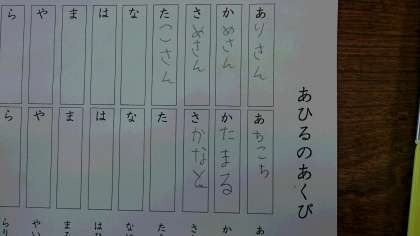 あひるのあくび
ありさん
かめさん
さめさん
たこさん
な
は
ま
や
ら
あちこち
かたまる
さかなと
た
な
は
ま
や
ら
あ
か
さ
た
な